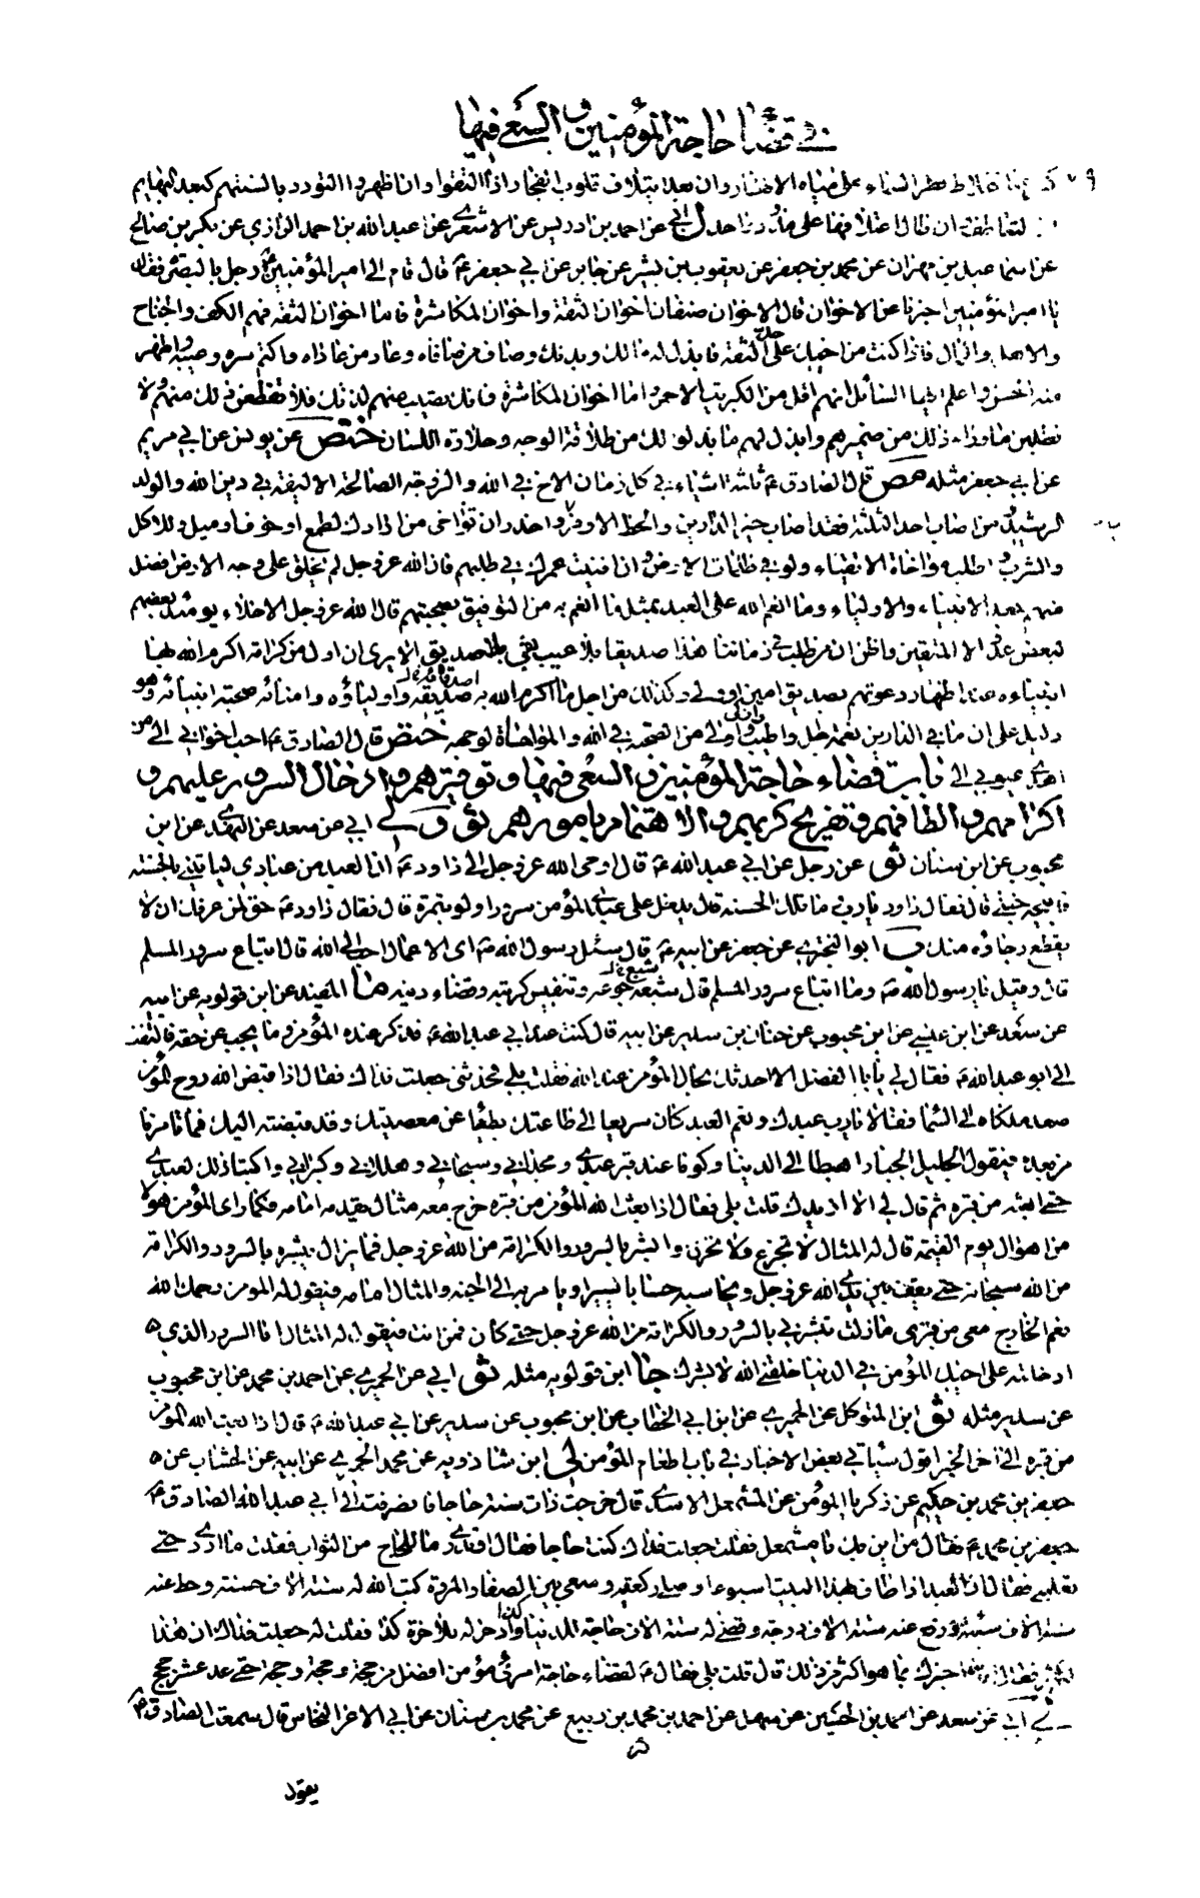 في قضاء حاجة المؤمنين و السعي فيها
مطر السماء على مياه الانهار وان بعد ايتلاف قلوب الفجار اذا التقوا وان اظهروا التودد بالسنتهم كبعد البهايم
عن احمد بن ادريس عن الاشعري عن عبد الله بن احمد الرازي عن بكر بن صالح
عن اسماعيل بن مهران عن محمد بن جعفر عن يعقوب بن بشير عن جابر عن ابي جعفر ع قال قام الى امير المؤمنين ع رجل بالبصرة فقال
يا امير المؤمنين اخبرنا عن الاخوان قال الاخوان صنفان اخوان الثقة واخوان المكاشرة فاما اخوان الثقة فهم الكف والجناح
والاهل والمال فاذا كنت من اخيك على حد الثقة فابذل له مالك وبدنك وصاف من صافاه وعاد من عاداه واكتم سره وعيبه واظهر
منه الحسن واعلم ايها السائل انهم اقل من الكبريت الاحمر واما اخوان المكاشرة فانك تصيب منهم لذتك فلا تقطعن ذلك منهم ولا
تطلبن ما وراء ذلك من ضميرهم وابذل لهم ما بذلوا لك من طلاقة الوجه وحلاوة اللسان ختص عن يونس عن ابي مريم
عن ابي جعفر مثله مص قال الصادق ع ثلثة اشياء في كل زمان الاخ في الله والزوجة الصالحة الاليفة في دين الله والولد
الرشيد من اصاب احد الثلثة فقد اصاب خير الدارين والحظ الاوفر واحذر ان تواخي من ارادك لطمع او خوف او ميل وللاكل
والشرب واطلب مواخاة الاتقياء ولو في ظلمات الارض وان افنيت عمرك في طلبهم فان الله عز وجل لم يخلق على وجه الارض افضل
منهم بعد الانبياء والاولياء وما انعم الله على العبد بمثل ما انعم به من التوفيق بصحبتهم قال الله عز وجل الاخلاء يومئذ بعضهم
لبعض عدو الا المتقين واظن ان من طلب في زماننا هذا صديقا بلا عيب بقي بلا صديق الا يرى ان اول من كرامة اكرم الله بها
انبياءه عند اظهار دعوتهم صديق امين او ولي وكذلك من اجل ما اكرم الله به اصدقائه واولياؤه وامنائه صحبة انبيائه وهو
دليل على ان ما في الدارين نعمة اجل واطيب وازكى من الصحبة في الله والمواخاة لوجهه ختص قال الصادق ع احب اخواني الى من
اهدى عيوبي الي باب قضاء حاجة المؤمنين و السعي فيها و توقيرهم و ادخال السرور عليهم و
اكرامهم و الطافهم و تفريج كربهم و الاهتمام بامورهم ابي عن سعد عن النهدي عن ابن
محبوب عن ابن سنان عن رجل عن ابي عبد الله ع قال اوحى الله عز وجل الى داود ع ان العبد من عبادي لياتيني بالحسنة
فابيحه جنتي قال فقال داود يا رب ما تلك الحسنة قال يدخل على عبدي المؤمن سرورا ولو بتمرة قال فقال داود ع حق لمن عرفك ان لا
يقطع رجاؤه منك ب ابو البختري عن جعفر عن ابيه ع قال سئل رسول الله ص اى الاعمال احب الى الله قال اتباع سرور المسلم
قال وقيل يا رسول الله ص وما اتباع سرور المسلم قال شبعة جوعه وتنفيس كربته وقضاء دينه ما المفيد عن ابن قولويه عن ابيه
عن سعد عن ابن عيسى عن ابن محبوب عن حنان بن سدير عن ابيه قال كنت عند ابي عبد الله ع فذكر عنده المؤمن وما يجب من حقه فالتفت
الى ابو عبد الله ع فقال لي يا ابا الفضل الا احدثك بحال المؤمن عند الله فقلت بلى فحدثني جعلت فداك فقال اذا قبض الله روح المؤمن
صعد ملكاه الى السماء فقالا يا رب عبدك ونعم العبد كان سريعا الى طاعتك بطيئا عن معصيتك وقد قبضته اليك فما تامرنا
من بعده فيقول الجليل الجبار اهبطا الى الدنيا وكونا عند قبر عبدي ومجداني وسبحاني وهللاني وكبراني واكتبا ذلك لعبدي
حتى ابعثه من قبره ثم قال لي الا ازيدك قلت بلى فقال اذا بعث الله المؤمن من قبره خرج معه مثال يقدمه امامه فكلما راى المؤمن هولا
من اهوال يوم القيمة قال له المثال لا تجزع ولا تحزن وابشر بالسرور والكرامة من الله عز وجل فما يزال يبشره بالسرور والكرامة
من الله سبحانه حتى يقف بين يدي الله عز وجل ويحاسبه حسابا يسيرا ويامر به الى الجنة والمثال امامه فيقول له المؤمن رحمك الله
نعم الخارج معي من قبري مازلت تبشرني بالسرور والكرامة من الله عز وجل حتى كان فمن انت فيقول له المثال انا السرور الذي
ادخلته على اخيك المؤمن في الدنيا خلقني الله لابشرك جا ابن قولويه مثله ثو ابي عن الحميري عن احمد بن محمد عن ابن محبوب
عن سدير مثله ثو ابن المتوكل عن الحميري عن ابن ابي الخطاب عن ابن محبوب عن سدير عن ابي عبد الله ع قال اذا بعث الله المؤمن
من قبره الى اخر الخبر اقول سياتي بعض الاخبار في باب اطعام المؤمن لي ابن شاذويه عن محمد الحميري عن ابيه عن الخشاب عن
جعفر بن محمد بن حكيم عن زكريا المؤمن عن المشمعل الاسدي قال خرجت ذات سنة حاجا فانصرفت الى ابي عبد الله الصادق
جعفر بن محمد ع فقال من اين بك يا مشمعل فقلت جعلت فداك كنت حاجا فقال او تدري ما للحاج من الثواب فقلت ما ادري حتى
تعلمني فقال ان العبد اذا طاف بهذا البيت اسبوعا وصلى ركعتيه وسعى بين الصفا والمروة كتب الله له ستة الاف حسنة وحط عنه
ستة الاف سيئة ورفع عنه ستة الاف درجة وقضى له ستة الاف حاجة للدنيا كذا وادخر له للاخرة كذا فقلت له جعلت فداك ان هذا
لكثير فقال الا اخبرك بما هو اكثر من ذلك قال قلت بلى فقال ع لقضاء حاجة امرئ مؤمن افضل من حجة وحجة وحجة حتى عد عشر حجج
لي ابي عن سعد عن احمد بن الحسين عن سهل عن احمد بن محمد بن ربيع عن محمد بن سنان عن ابي الاعز النحاس قال سمعت الصادق ع
يقول